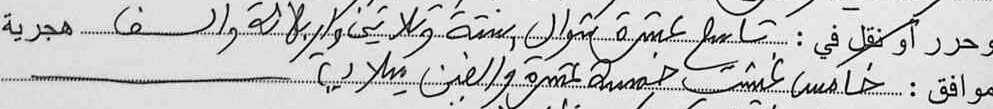 وحرر أو نقل في : تاسع عشرة شوال ستة وثلاثين واربعمائة والف هجرية
موافق : خامس غشت خمسة عشرة والفين ميلادية